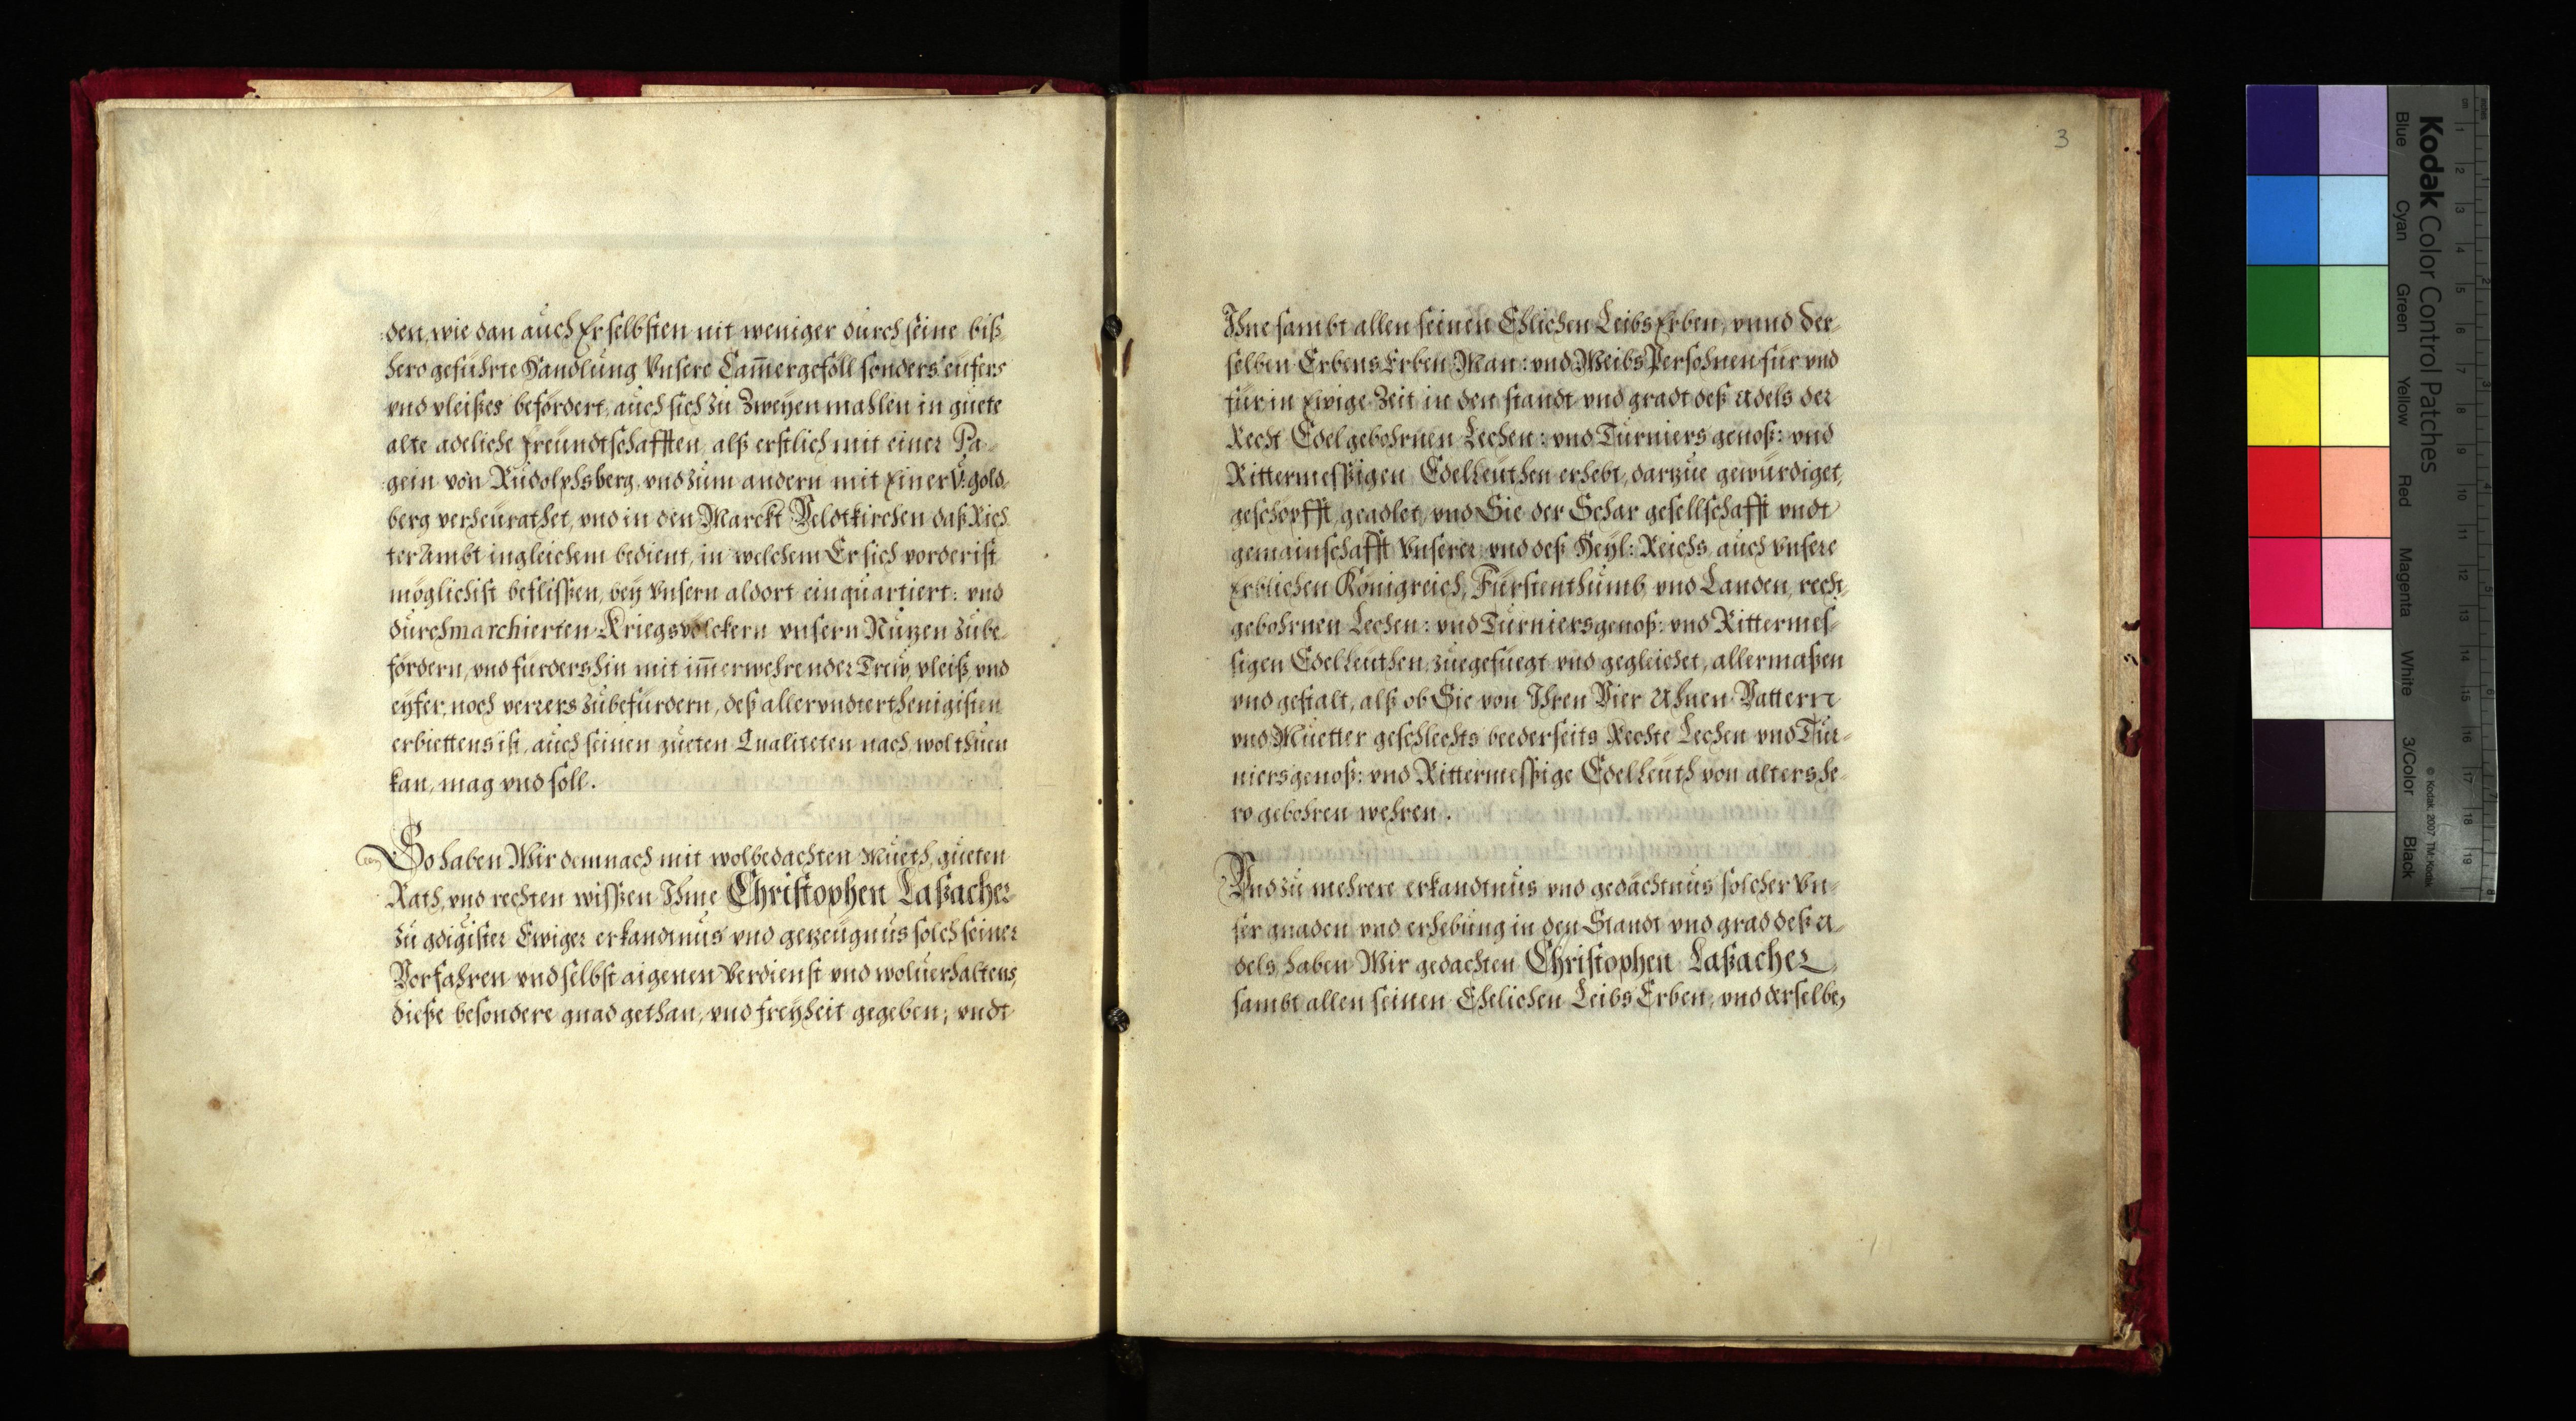 den, wie dan auch Er selbsten nit weniger durch seine biß
hero geführte Handlung Vnsere Cam̄ergeföll sonders eüfers
vnd vleißes befördert, auch sich zu Zweyen mahlen in guete
alte adeliche freundtschafften, alß erstlich mit einer Pa-
gein von Rudolphsberg, vnd zum andern mit Einer V: gold-
berg verheurathet, vnd in den Marckt Veldtkirchen daß Rich
ter Ambt ingleichem bedient, in welchem Er sich vorderist
möglichist beflissen, bey Vnsern aldort einquartiert: vnd
durchmarchierten Kriegsvölckern vnsern Nutzen zube-
fördern, vnd fürdershin mit im̄erwehrender Trew, vleiß, vnd
eyfer, noch verrers zubefürdern, deß allervndterthenigisten
erbiettens ist, auch seinen gueten Qualiteten nach, wol thuen
kan, mag vnd soll.
So haben Wir demnach mit wolbedachten Mueth, gueten
Rath, vnd rechten wissen Ihme Christophen Laßacher
zu gdigister Ewiger erkandtnus vnd gezeugnus solch seiner
Vorfahren vnd selbst aigenen Verdienst vnd woluerhaltens,
dieße besondere gnad gethan, vnd freyheit gegeben, vndt
3
Ihne sambt allen seinen Ehlichen Leibs Erben, vnnd der-
selben Erbens Erben Man: vnd Weibs Persohnen für vnd
für in Ewige Zeit in den standt vnd gradt deß Adels der
Recht Edelgebohrnen Lechen: vnd Turniers genoß: vnd
Rittermeßigen Edelleuthen erhebt, darzue gewürdiget,
geschöpfft, geadlet, vnd Sie der Schar gesellschafft vndt
gemainschafft Vnserer vnd deß Heyl: Reichs, auch Vnsere
Erblichen Königreich, Fürstenthumb vnd Landen, recht
gebohrnen Lechen: vnd Turniersgenoß: vnd Rittermes-
sigen Edelleuthen, zuegefuegt vnd gegleichet, allermaßen
vnd gestalt, alß ob Sie von Ihren Vier Ahnen Vattern
vnd Muetter geschlechts beederseits Rechte Lechen vnd Tur-
niersgenoß: vnd Rittermeßige Edelleuth von altershe-
ro gebohren wehren.
Vnd zu mehrere erkandtnus vnd gedächtnus solcher Vn-
ser gnaden vnd erhebung in den Standt vnd grad deß A-
dels, haben Wir gedachten Christophen Laßacher
sambt allen seinen Ehelichen Leibs Erben, vnd derselben
Kodak Color Control Patches
Blue Cyan Green Yellow Red Magenta White 3/Color Black
© Kodak, 2007 TM: Kodak